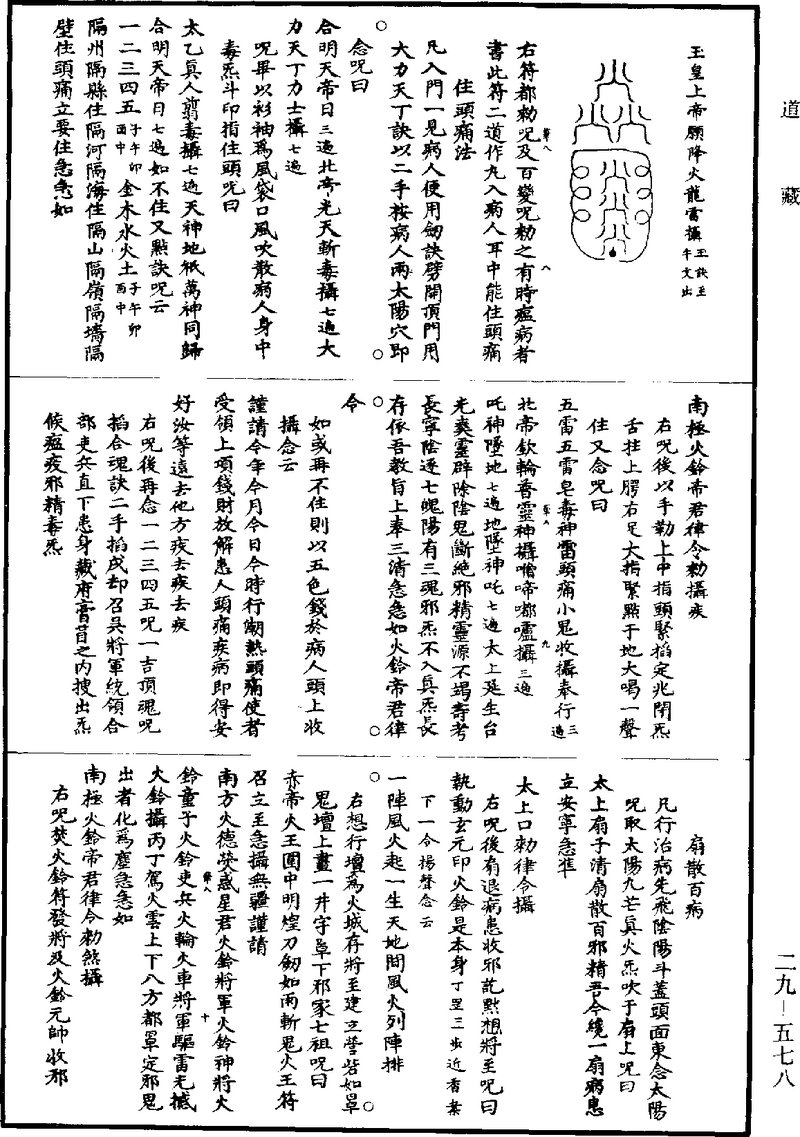 道藏
玉皇上帝願降火龍雷攝玉訣至午文出
右符都勅呪及百變呪勅之有時瘟病者
書此符二道作丸入病人耳中能住頭痛
住頭痛法
凡入門一見病人便用劒訣劈開頂門用
大力天丁訣以二手按病人兩太陽穴即
念呪曰
合明天帝日三遍北帝光天斬毒攝七遍大
力天丁力士攝七遍
呪畢以衫袖爲風袋口風吹散病人身中
毒炁斗印指住頭呪曰
太乙真人翦毒攝七遍天神地祇萬神同歸
合明天帝日七遍如不住又點訣呪云
一二三四五子午卯酉中金木水火土子午卯酉中
隔州隔縣住隔河隔海住隔山隔嶺隔墻隔
壁住頭痛立要住急急如
南極火鈴帝君律令勅攝疾
右呪後以手勒上中指頭緊掐定兆閉炁
舌拄上腭右足大指緊點于地大喝一聲
住又念呪曰
五雷五雷皂毒神雷頭痛小鬼收攝奉行三遍
北帝欽輪普靈神攝噜啼嘟嚧攝三遍
吒神墜地七遍地墜神吒七遍太上延生台
光爽靈辟除陰鬼斷絶邪精靈源不竭壽考
長寧陰逐七魄陽有三魂邪炁不入真炁長
存依吾教旨上奉三清急急如火鈴帝君律
令
如或再不住則以五色錢於病人頭上收
攝念云
謹請今年今月今日今時行潮熱頭痛使者
受領上項錢財放解患人頭痛疾病即得安
好汝等遠去他方疾去疾去疾
右呪後再念一二三四五呪一吉頂魂呪
掐合魂訣二手掐戌却召吳將軍統領合
部吏兵直下患身藏府膏肓之内搜出炁
候瘟疫邪精毒炁
扇散百病
凡行治病先飛陰陽斗蓋頭面東念太陽
呪取太陽九芒真火炁吹于扇上呪曰
太上扇子清扇散百邪精吾今纔一扇病患
立安寧急準
太上口勅律令攝
右呪後扇退病患收邪訖點想將至呪曰
執動玄元印火鈴是本身丁罡三步近香案
下一令揚聲念云
一陣風火起一生天地間風火列陣排
右想行壇爲火城存將至建立營砦如罩
鬼壇上畫一井字罩下邪家七祖呪曰
赤帝火王圍中明煌刀劒如雨斬鬼火王符
召立至急攝無疆謹請
南方火德熒惑星君火鈴將軍火鈴神將火
鈴童子火鈴吏兵火輪火車將軍驅雷无撼
火鈴攝丙丁駕火雲上下八方都罩定邪鬼
出者化爲塵急急如
南極火鈴帝君律令勅煞攝
右呪焚火鈴符發將及火鈴元帥收邪
二九—五七八